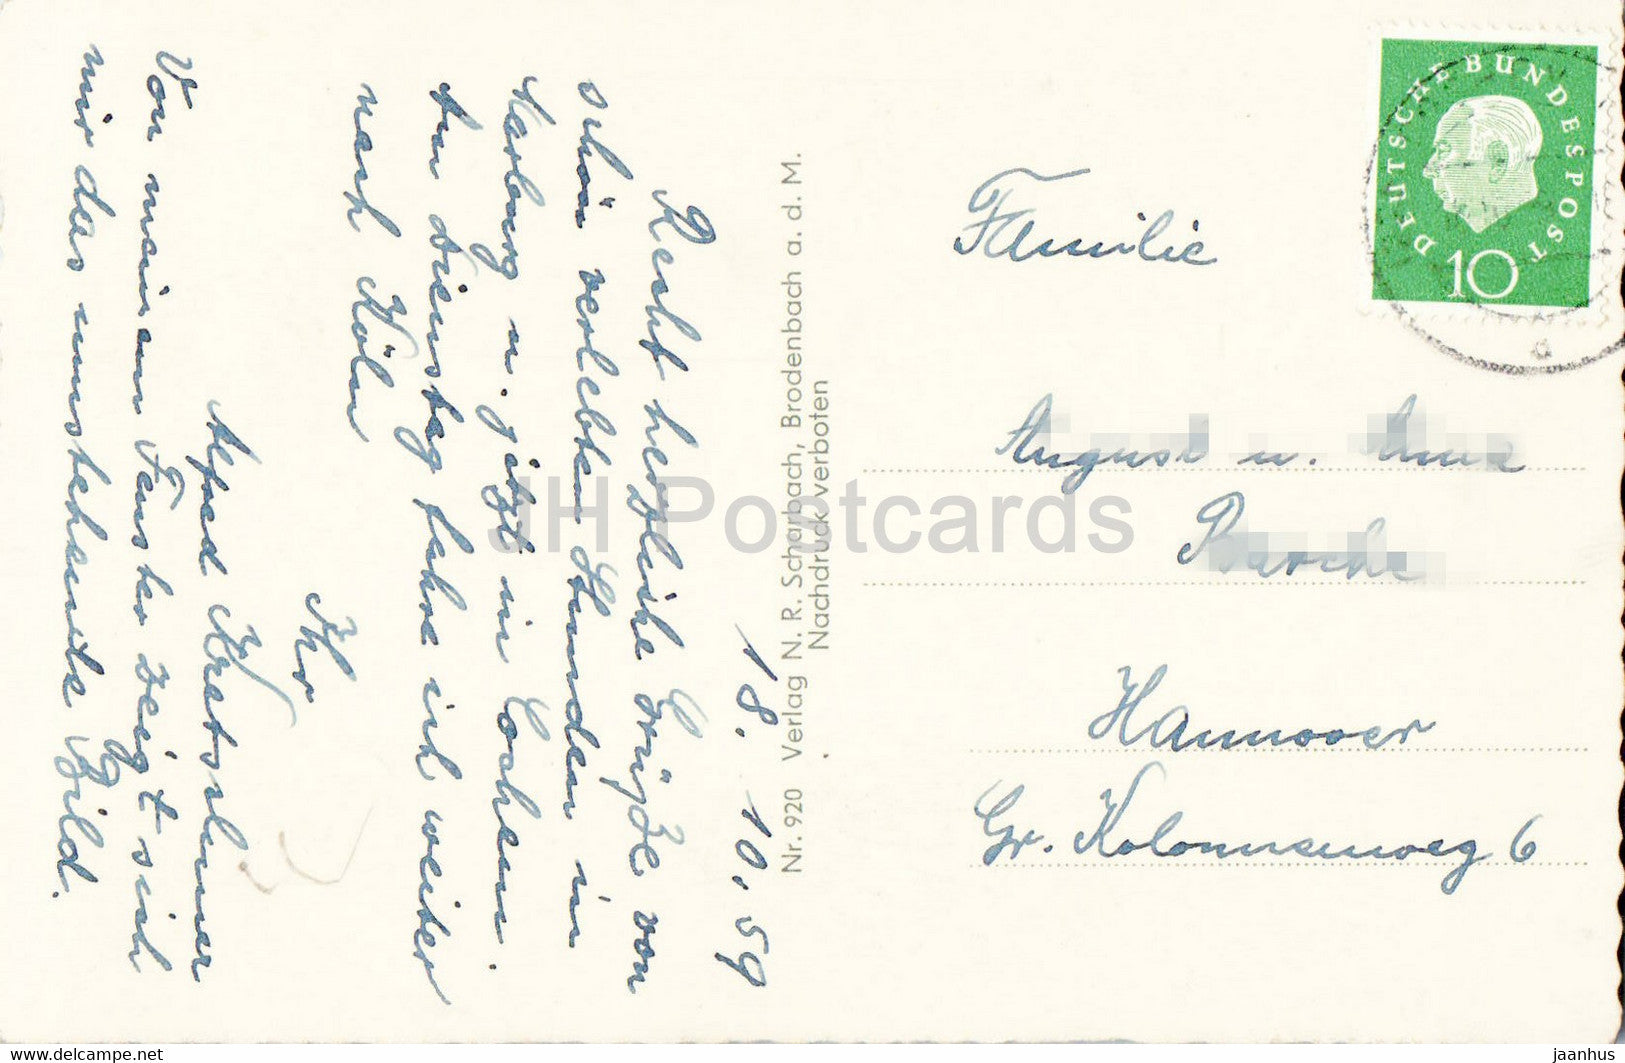 18. 10. 59
Recht herzliche Grüße von
schön verlebten Stunden in
Marburg u. jetzt in Cochem.
Am Dienstag fahre ich weiter
nach Köln
Ihr
Alfred Kretschmar
Von meinem Fenster zeigt sich
mir das umstehende Bild.
Nr. 920 Verlag N. R. Scharbach, Brodenbach a. d. M.
Nachdruck verboten
DEUTSCHE BUNDESPOST
10
Familie
August u.
Hannover
Gr. Kolonnenweg 6
JH Postcards
www.delcampe.net
jaanhus